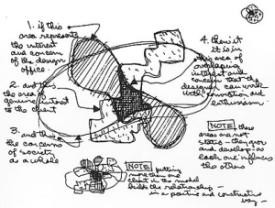 1. if this
area represents
the interest
and concern
of the design
office
2. and this
the area of
genuine interest
to the client
3. and this
the concerns
of society
as a whole
4. then it
is in this
area of
overlapping
interest and
concern that the
designer can work
with conviction and
enthusiasm
NOTE: these
areas are not
static - they grow
and develop
as
each one influences
the others
NOTE: putting
more than one
client in the model
builds the relationship -
in a positive and constructive
way -